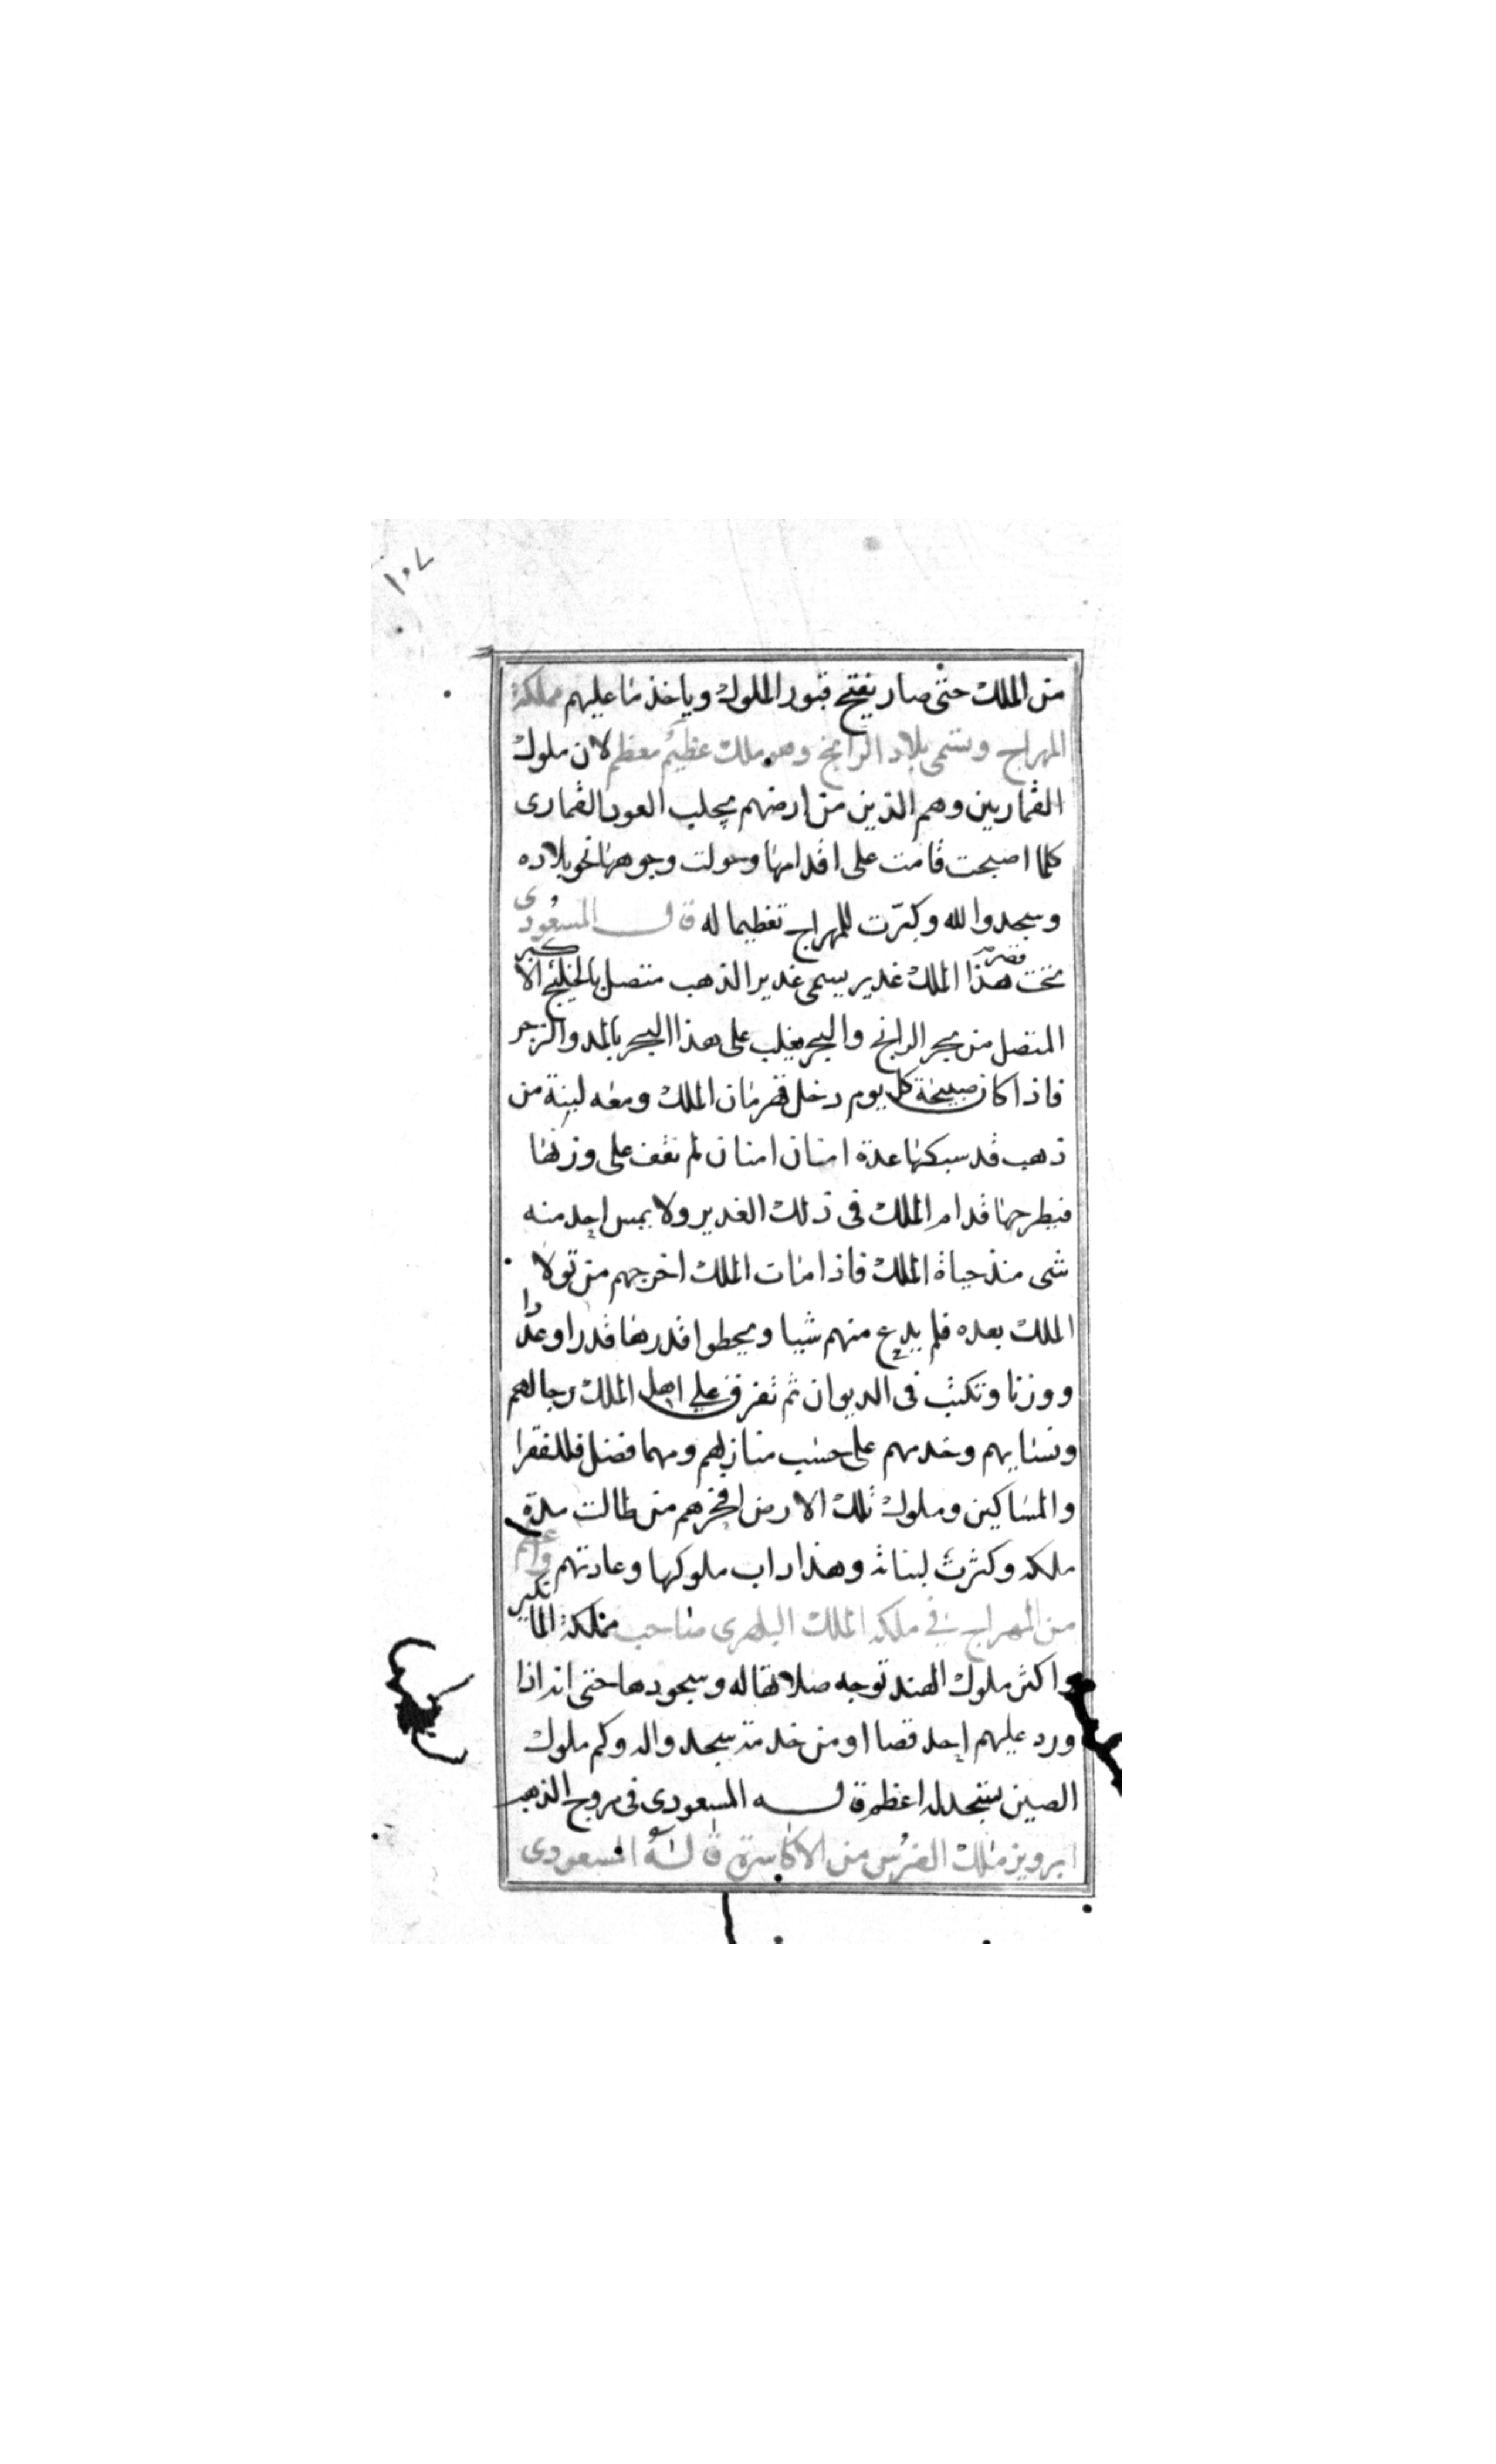 ١٠٧
من الملك حتى صار يفتح قبور الملوك وياخذ ما عليهم مملكة
المهراج وتسمى بلاد الرانج وهو ملك عظيم معظم لان ملوك
القماريين وهم الذين من ارضهم يجلب العود القمارى
كلما اصبحت قامت على اقدامها وحولت وجوهها نحو بلاده
وسجدوا لله وكبرت للمهراج تعظيما له قال المسعودى
تحت قصر هذا الملك غدير يسمى غدير الذهب متصل بالخليج الاكبر
المتصل من بحر الرانج والبحر يغلب على هذا البحر بالمد والزجر
فاذا كان صبيحة كل يوم دخل قهرمان الملك ومعه لبنة من
ذهب قد سبكها عدة امنان امنان لم نقف على وزنها
فيطرحها قدام الملك فى ذلك الغدير ولا يمس احد منه
شى منذ حياة الملك فاذا مات الملك اخرجهم من تولا
الملك بعده فلم يدع منهم شيا ويحطوا قدرها قدرا وعددا
ووزنا وتكتب فى الديوان ثم تفرق على اهل الملك رجالهم
ونسايهم وخدمهم على حسب منازلهم ومهما فضل فللفقرا
والمساكين وملوك تلك الارض افخرهم من طالت مدة
ملكه وكثرت لبناته وهذا داب ملوكها وعادتهم واعظم
من المهراج فى ملكه الملك البلهرى صاحب مملكة المانكير
واكثر ملوك الهند توجه صلاتها له وسجودها حتى انه اذا
ورد عليهم احد قصا او من خدمته سجدوا له وكم ملوك
الصين يسجد له اعظم قاله المسعودى فى مروج الذهب
ابرويز ملك الفرس من الاكاسرة قاله المسعودى